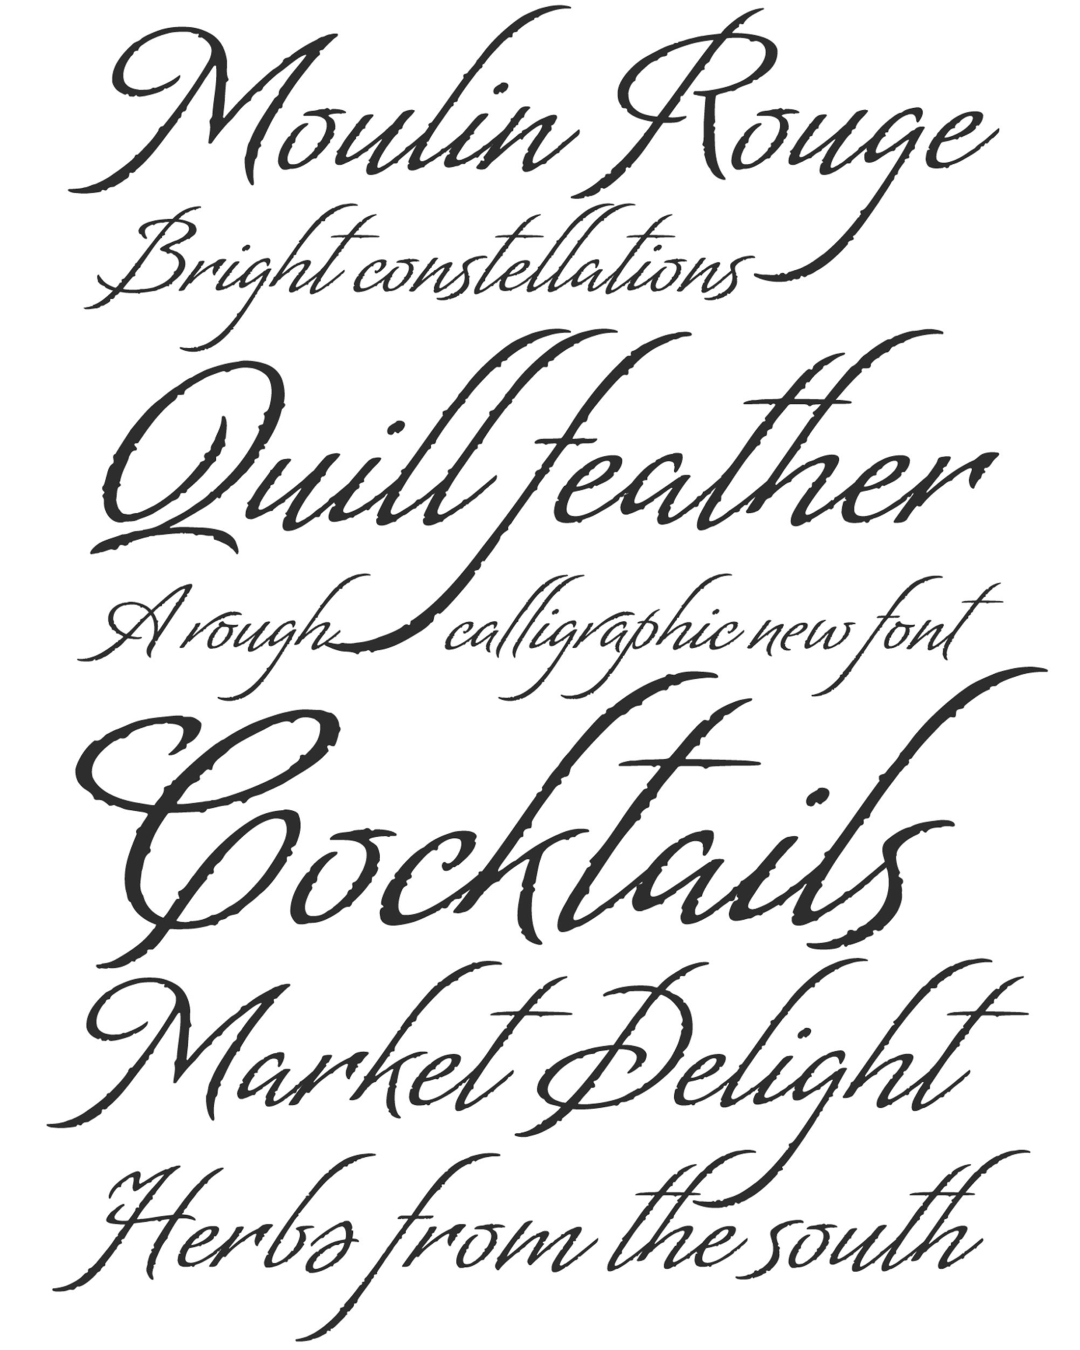 Moulin Rouge
Bright constellations
Quill feather
A rough calligraphic new font
Cocktails
Market Delight
Herbs from the south